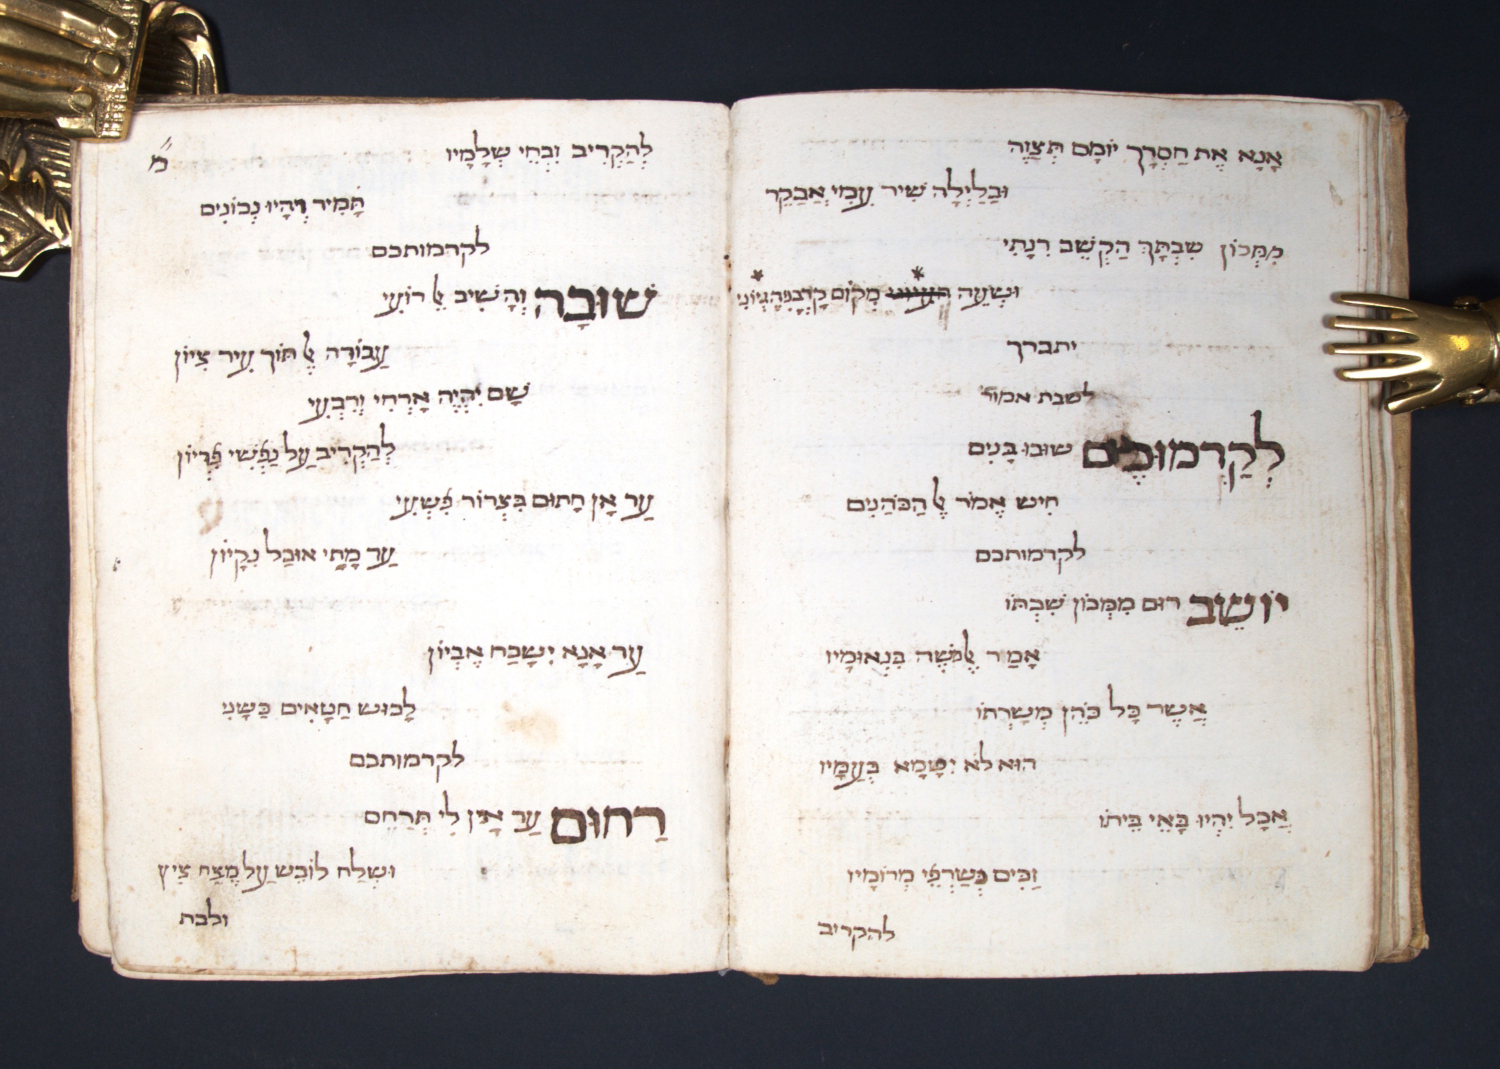 אָנָא אֶת חַסְדָּךְ יוֹמָם תְּצַוֶּה
וּבַלַּיְלָה שִׁיר עִמִּי אֲבַקֵּר
מִמְּכוֹן שִׁבְתָּךְ הַקְשֵׁב רִנָּתִי
וּשְׁעֵה מְקוֹם
יתברך
לשבת אמור
לְקַדְמוּתְכֶם שׁוּבוּ בָּנִים
חִישׁ אֱמֹר אֶל הַכֹּהֲנִים
לקדמותכם
יוֹשֵׁב רוּם מִמְּכוֹן שִׁבְתּוֹ
אָמַר אֶל מֹשֶׁה בִּנְאוּמָיו
אֲשֶׁר כָּל כֹּהֵן מְשָׁרְתוֹ
הוּא לֹא יִטַּמָּא בְּעַמָּיו
אֲבָל יִהְיוּ בָּאֵי בֵּיתוֹ
זַכִּים כְּשַׂרְפֵי מְרוֹמָיו
להקריב
מ
לְהַקְרִיב זִבְחֵי שְׁלָמָיו
תָּמִיד וְהָיוּ נְכוֹנִים
לקדמותכם
שׁוּבָה וְהָשִׁיב אֶל רוֹעִי
עֲבוֹדָה אֶל תּוֹךְ עִיר צִיּוֹן
שָׁם יִהְיֶה אָרְחִי וְרִבְעִי
לְהַקְרִיב עַל נַפְשִׁי פִּדְיוֹן
עַד אָן חָתוּם בִּצְרוֹר פִּשְׁעִי
עַד מָתַי אוּכַל נִקָּיוֹן
עַד אָנָא יִשָּׁכַח אֶבְיוֹן
לָבוּשׁ חַטָּאִים כַּשָּׁנִי
לקדמותכם
רַחוּם עַד אֵין לִי תְּרַחֵם
וּשְׁלַח לוֹבֵשׁ עַל מֵצַח צִיץ
ולבת